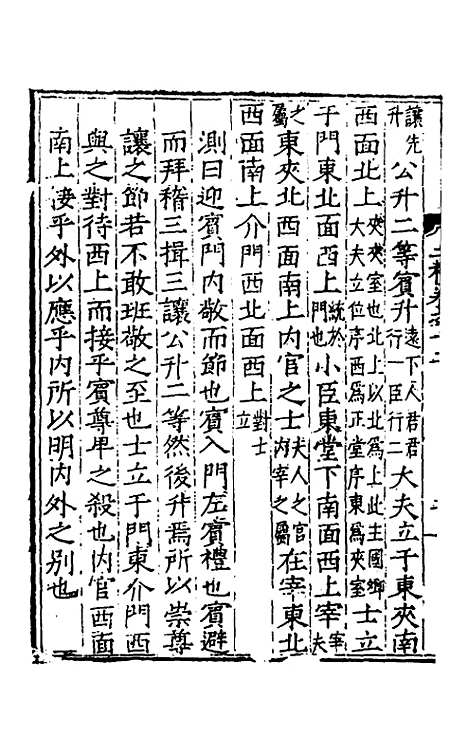 讓先升公升二等賓升遠下人君君行一臣行二大夫立于東夾南
西面北上夾夾室也北上以北爲上此主國鄉大夫立位序西爲正堂序東爲夾室士立
于門東北面西上統於門也小臣東堂下南面西上宰宰夫
之屬東夾北西面南上内官之士夫人之官内宰之屬在宰東北
西面南上介門西北面西上對士立
測曰迎賓門内敬而節也賓入門左賓禮也賓避
而拜稽三揖三讓公升二等然後升焉所以崇尊
讓之節若不敢班敬之至也士立于門東介門西
與之對待西上而接乎賓尊卑之殺也内官西面
南上凄乎外以應乎内所以明内外之别也